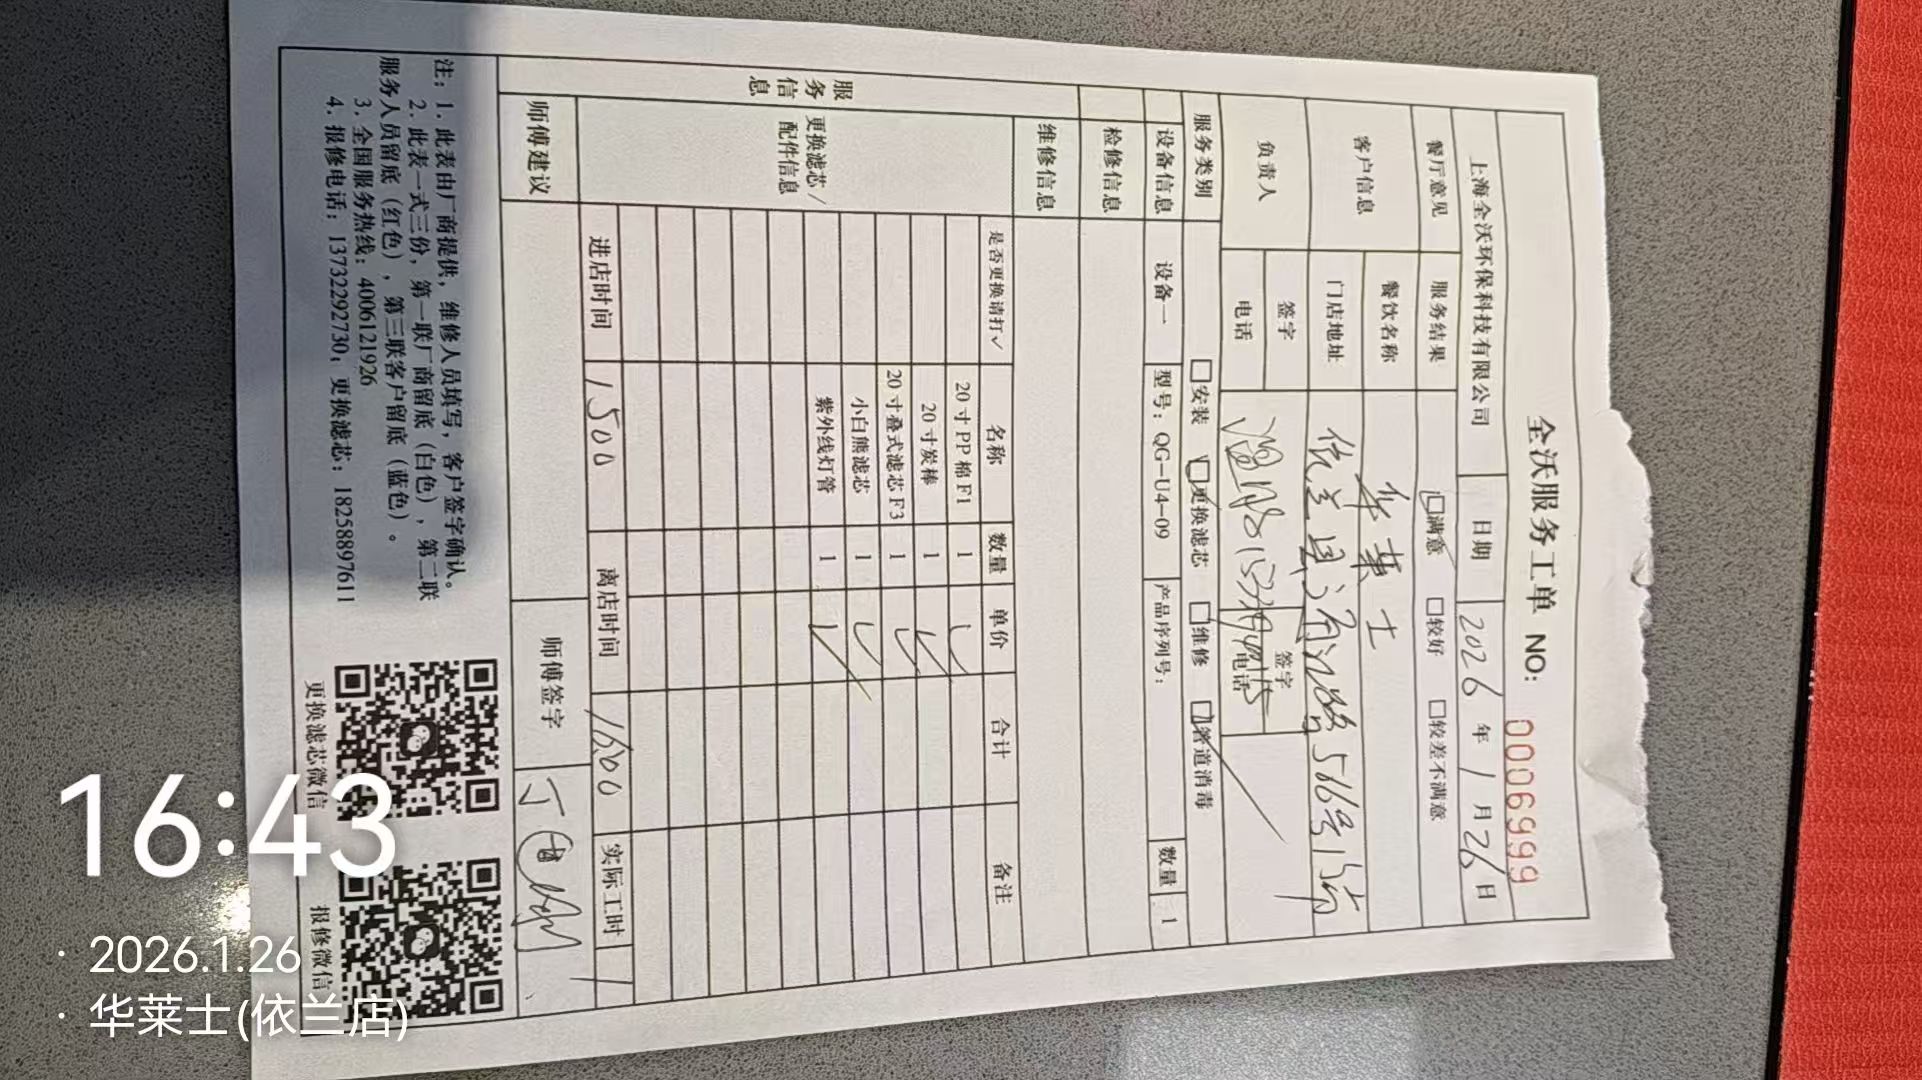 全沃服务工单 NO: 0006999
上海全沃环保科技有限公司 日期 2026 年 1 月 26 日
餐厅意见 服务结果 □满意 □较好 □较差不满意
客户信息 餐饮名称 华莱士
门店地址 依兰县 路 516号
负责人 签字 签字
电话 电话
服务类别 □安装 □更换滤芯 □维修 □管道消毒
设备信息 设备一 型号：QG-U4-09 产品序列号： 数量 1
检修信息
维修信息
服务信息
更换滤芯/配件信息
是否更换请打✓ 名称 数量 单价 合计 备注
20寸PP棉F1 1 ✓
20寸炭棒 1 ✓
20寸叠式滤芯F3 1 ✓
小白熊滤芯 1 ✓
紫外线灯管 1 ✓
进店时间 1500 离店时间 1600 实际工时 1
师傅建议 师傅签字
注：1. 此表由厂商提供，维修人员填写，客户签字确认。
2. 此表一式三份，第一联厂商留底（白色），第二联
服务人员留底（红色），第三联客户留底（蓝色）。
3. 全国服务热线：4006121926
4. 报修电话：13732292730；更换滤芯：18258897611
更换滤芯微信 报修微信
16:43
· 2026.1.26
· 华莱士(依兰店)